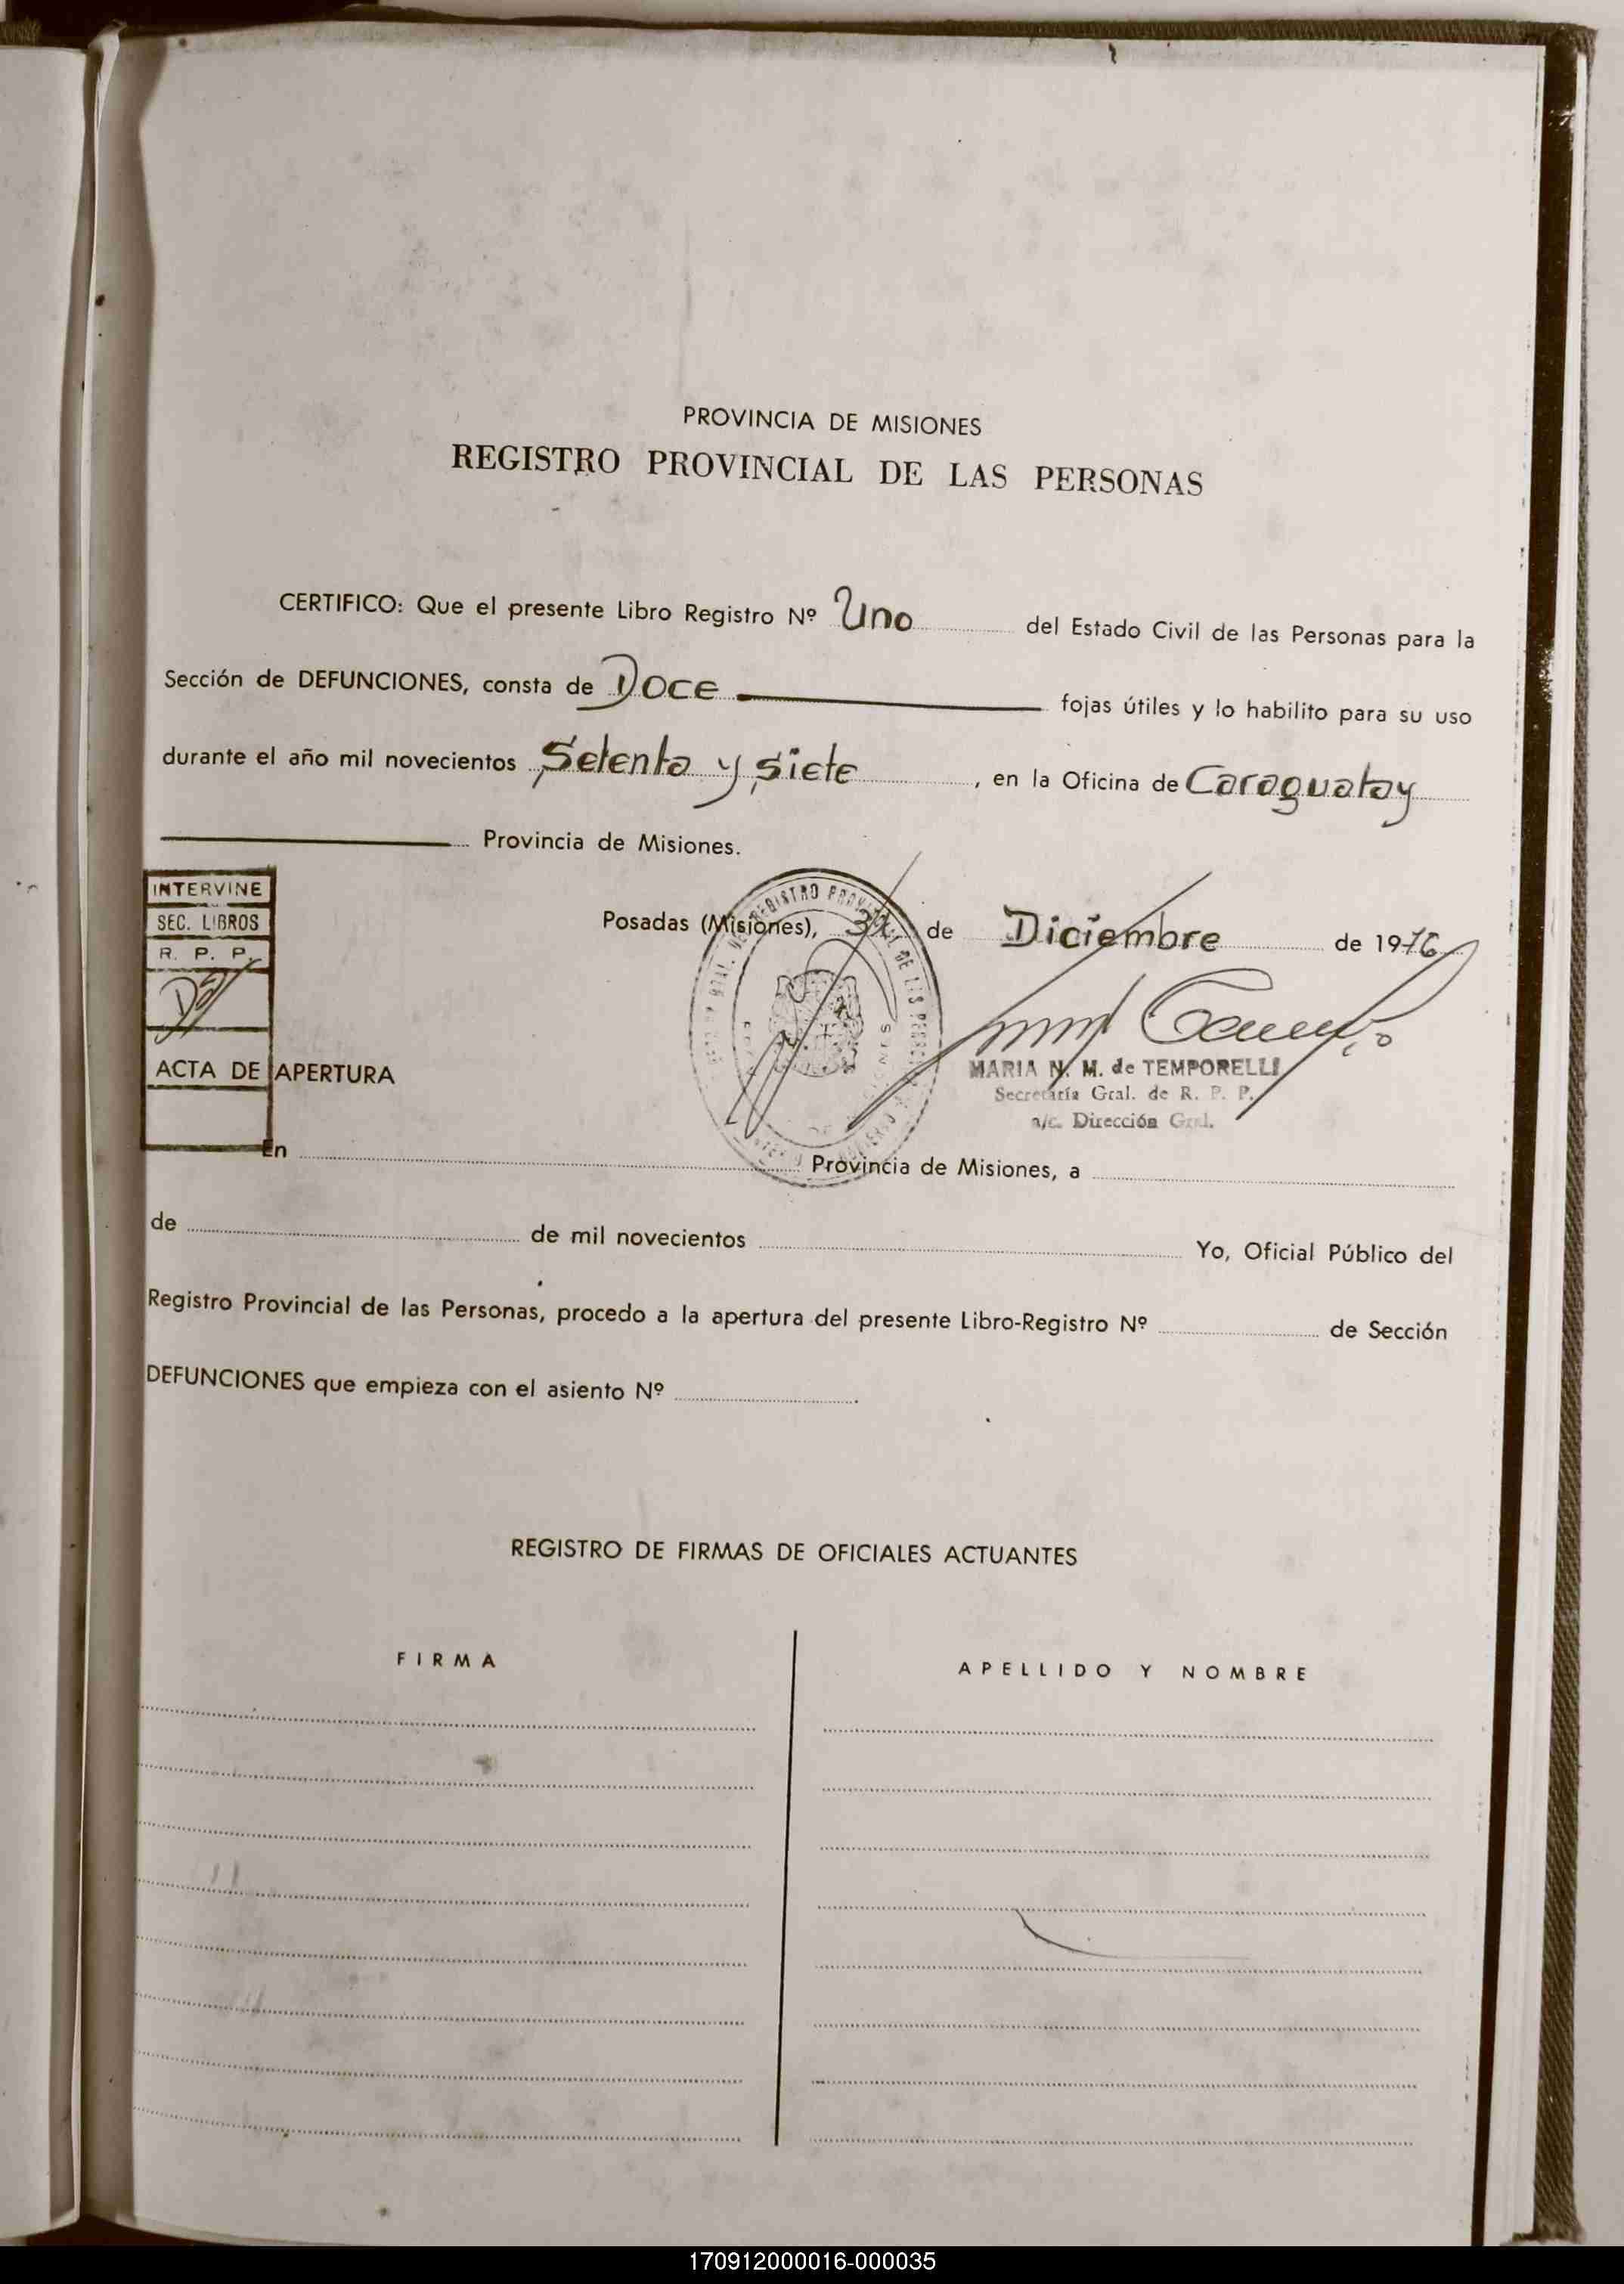 PROVINCIA DE MISIONES
REGISTRO PROVINCIAL DE LAS PERSONAS
CERTIFICO: Que el presente Libro Registro Nº Uno del Estado Civil de las Personas para la
Sección de DEFUNCIONES, consta de Doce fojas útiles y lo habilito para su uso
durante el año mil novecientos Setenta y siete, en la Oficina de Caraguatay
Provincia de Misiones.
INTERVINE
SEC. LIBROS
R. P. P.
Posadas (Misiones), 31 de Diciembre de 1976
MARIA N. M. de TEMPORELLI
Secretaría Gral. de R. P. P.
a/c. Dirección Gral.
ACTA DE APERTURA
En Provincia de Misiones, a
de de mil novecientos Yo, Oficial Público del
Registro Provincial de las Personas, procedo a la apertura del presente Libro-Registro Nº de Sección
DEFUNCIONES que empieza con el asiento Nº
REGISTRO DE FIRMAS DE OFICIALES ACTUANTES
FIRMA APELLIDO Y NOMBRE
170912000016-000035